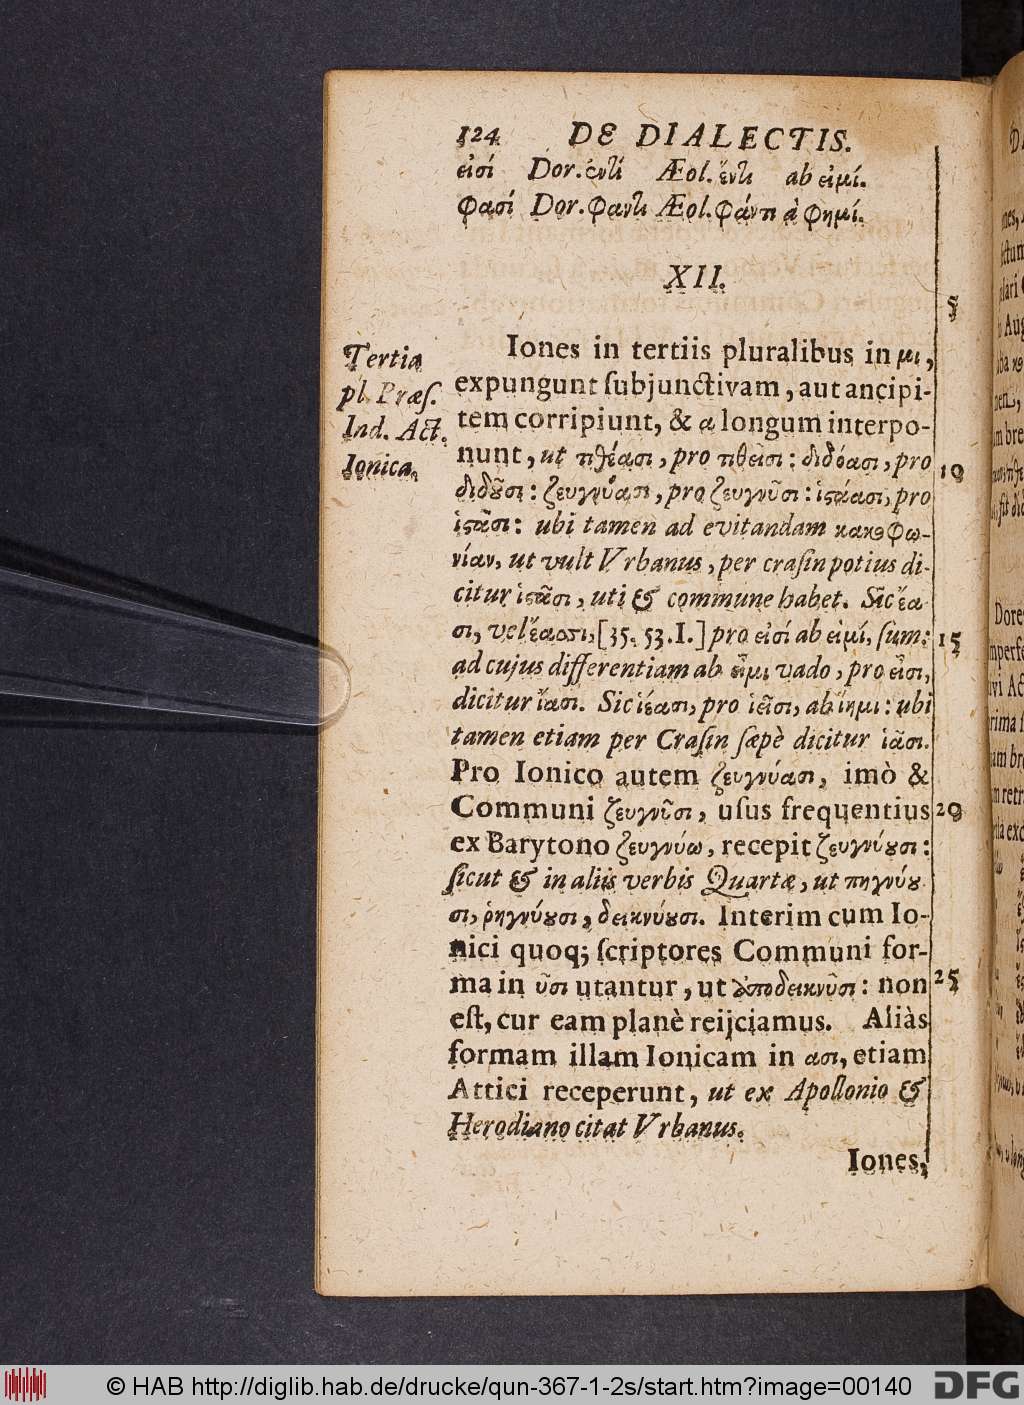 124 DE DIALECTIS.
εἰσί Dor. ἐντί Æol. ἔντι ab εἰμί.
φασί Dor. φαντι Æol. φάντι à φημί.
XII.
5
Tertia
pl. Præſ.
Ind. Act.
Ionica.
Iones in tertiis pluralibus in μι,
expungunt ſubjunctivam, aut ancipi-
tem corripiunt, & α longum interpo-
nunt, ut τιθέασι, pro τιθεῖσι: διδόασι, pro 10
διδοῦσι: ζευγνύασι, pro ζευγνῦσι: ἱστάασι, pro
ἱστᾶσι: ubi tamen ad evitandam κακοφω-
νίαν, ut vult Vrbanus, per craſin potius di-
citur ἱστᾶσι, uti & commune habet. Sic ἔα-
σι, vel ἔασσι, [35. 53. I.] pro εἰσί ab εἰμί, ſum: 15
ad cujus differentiam ab εἶμι vado, pro εἶσι,
dicitur ἴασι. Sic ἱέασι, pro ἱεῖσι, ab ἵημι: ubi
tamen etiam per Craſin ſæpè dicitur ἱᾶσι.
Pro Ionico autem ζευγνύασι, imò &
Communi ζευγνῦσι, uſus frequentius 20
ex Barytono ζευγνύω, recepit ζευγνύουσι:
ſicut & in aliis verbis Quartæ, ut πηγνύου
σι, ῥηγνύουσι, δεικνύουσι. Interim cum Io-
nici quoq; ſcriptores Communi for-
ma in ῦσι utantur, ut ἀποδεικνῦσι: non 25
eſt, cur eam planè reijciamus. Aliàs
formam illam Ionicam in ασι, etiam
Attici receperunt, ut ex Apollonio &
Herodiano citat Vrbanus.
Iones,
© HAB http://diglib.hab.de/drucke/qun-367-1-2s/start.htm?image=00140 DFG